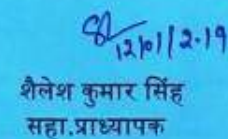 12/01/2019
शैलेश कुमार सिंह
सहा.प्राध्यापक